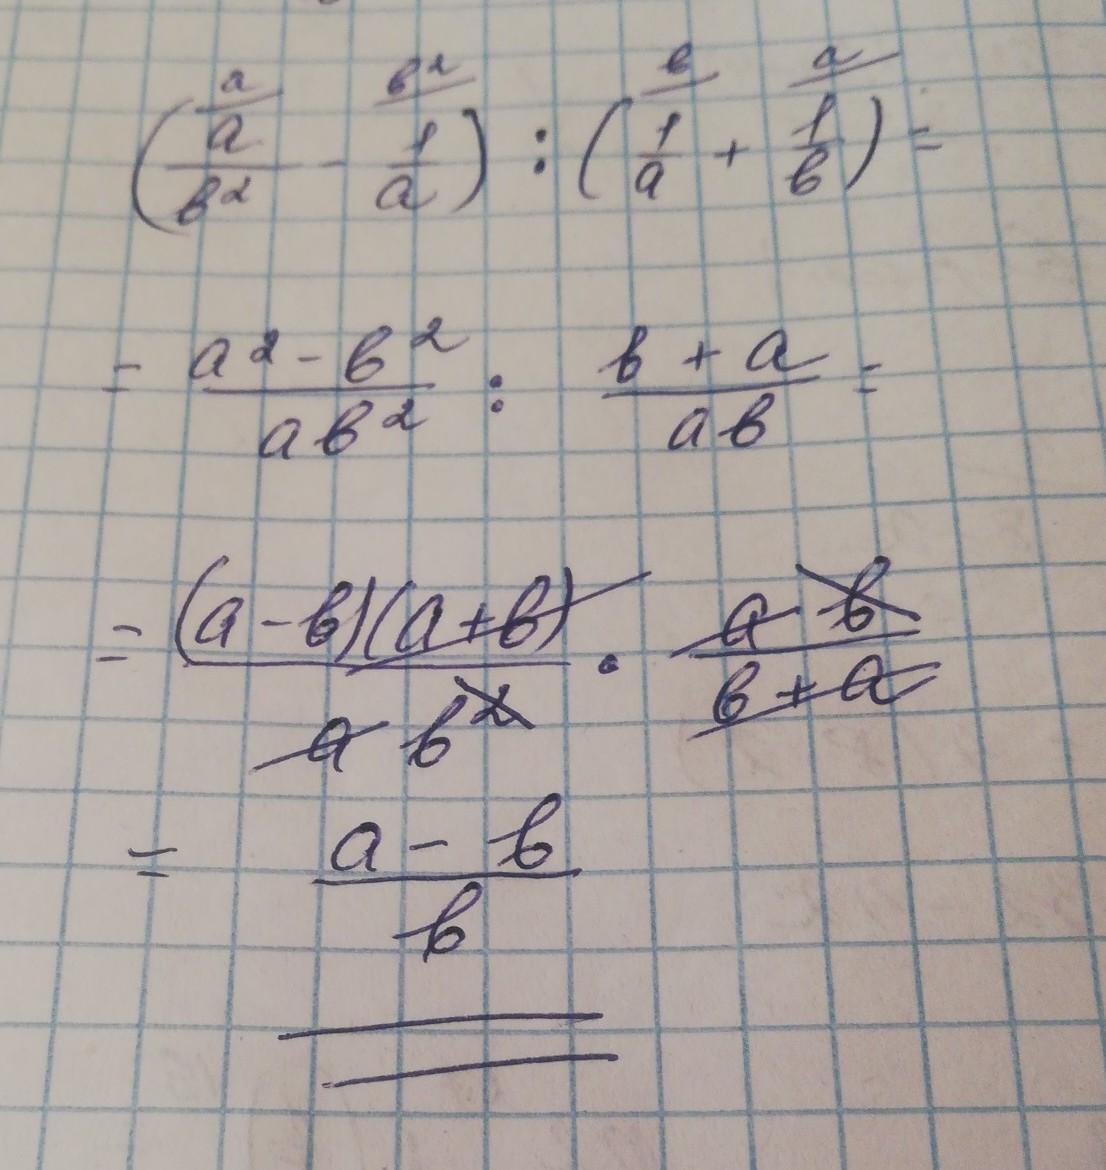 a b² b a
(a/b² - 1/a) : (1/a + 1/b) =
= a² - b²/ab² : b + a/ab =
= (a - b)(a + b)/ab² · ab/b + a
= a - b/b